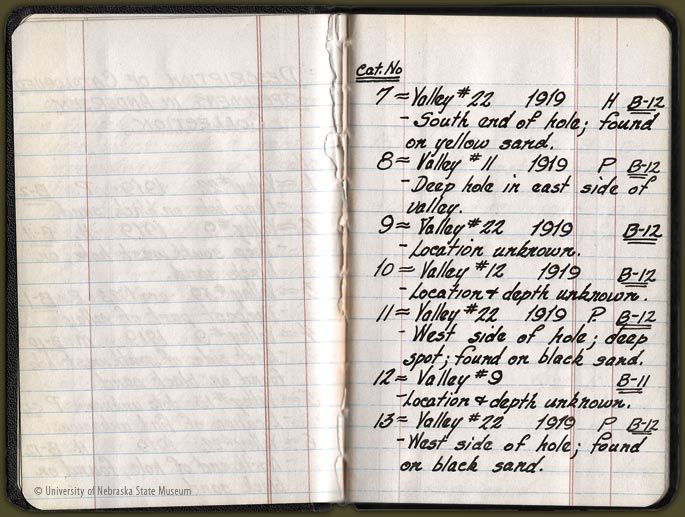 Cat. No
7 = Valley #22 1919 H B-12
- South end of hole; found
on yellow sand.
8 = Valley #11 1919 P B-12
- Deep hole in east side of
valley.
9 = Valley #22 1919 B-12
- Location unknown.
10 = Valley #12 1919 B-12
- Location & depth unknown.
11 = Valley #22 1919 P B-12
- West side of hole; deep
spot; found on black sand.
12 = Valley #9 B-11
- Location & depth unknown.
13 = Valley #22 1919 P B-12
- West side of hole; found
on black sand.
© University of Nebraska State Museum